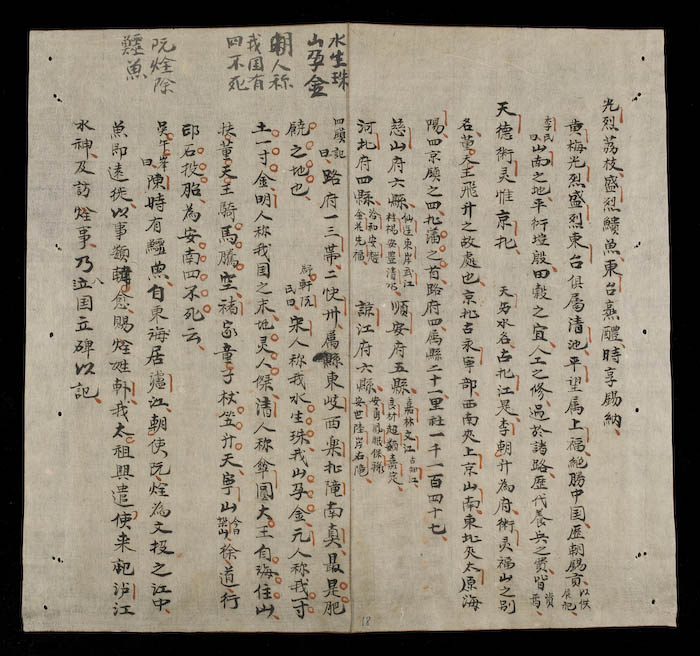 光烈荔枝盛烈鱝魚東台熹醴時享錫納
黄梅光烈盛烈東台俱属清池平望属上福絶勝中国歷朝錫貢以供辰祀
李民曰山南之地平衍壇殷田穀之宜人工之修過於諸路歷代養兵之費皆資焉
天德術灵惟京北 天另水名古北江是李朝升為府術灵福山之別
名董天王飛升之故處也京北古永寧部西南夾上京山南東北夾太原海
陽四京鎮之四北藩之首路府四属縣二十一里社一千一百四十七
慈山府六縣仙逰東岸武江桂楊安豊清 順安府五縣嘉林文江古細江良才超類嘉定
河北府四縣洽和安越金花先福 諒江府六縣安勇鳯眼保禄安世陸岸右隴
水生珠
山孕金
明人称
我国有
四不死
阮烇除
鱷魚
四願記曰路府一三帶二快卅属縣東岐西楽北隴南真最是肥
饒之地也
軒阮民曰宋人称我水生珠我山孕金元人称我一寸
土一寸金明人称我国之末地灵人傑清人称傘圓大王自海住山
扶董天王騎馬騰空褚家童子杖笠升天寧山今曰徐道行
邵石投胎為安南四不死云
吳午峯曰陳時有鱷魚自東海居瀘江朝使阮烇為文投之江中
魚即遠徙以事類韓愈賜烇姓軒我太祖興遣使来祀瀘江
水神及訪烇事乃泣国立碑以記
18